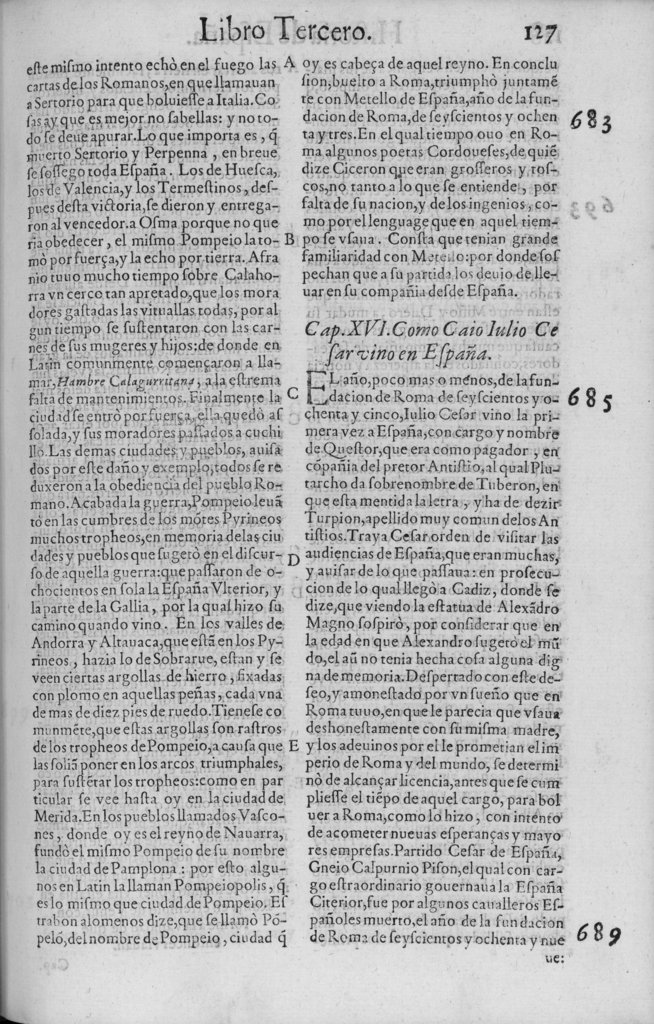 Libro Tercero. 127
este mismo intento echò en el fuego las
cartas de los Romanos, en que llamauan
a Sertorio para que boluiesse a Italia. Co
sas ay que es mejor no sabellas: y no to-
do se deue apurar. Lo que importa es, q̃
muerto Sertorio y Perpenna, en breue
se sossego toda España. Los de Huesca,
los de Valencia, y los Termestinos, des-
pues desta victoria, se dieron y entrega-
ron al vencedor. a Osma porque no que
ria obedecer, el mismo Pompeio la to-
mò por fuerça, y la echo por tierra. Afra
nio tuuo mucho tiempo sobre Calaho-
rra vn cerco tan apretado, que los mora
dores gastadas las vituallas todas, por al
gun tiempo se sustentaron con las car-
nes de sus mugeres y hijos: de donde en
Latin comunmente començaron a lla-
mar, Hambre Calagurritana, a la estrema
falta de mantenimientos. Finalmente la
ciudad se entrò por fuerça, ella quedò as
solada, y sus moradores passados a cuchi
llo. Las demas ciudades y pueblos, auisa
dos por este daño y exemplo, todos se re
duxeron a la obediencia del pueblo Ro-
mano. Acabada la guerra, Pompeio leuã
tò en las cumbres de los mõtes Pyrineos
muchos tropheos, en memoria de las ciu
dades y pueblos que sugetò en el discur-
so de aquella guerra: que passaron de o-
chocientos en sola la España Vlterior, y
la parte de la Gallia, por la qual hizo su
camino quando vino. En los valles de
Andorra y Altauaca, que estã en los Py-
rineos, hazia lo de Sobrarue, estan y se
veen ciertas argollas de hierro, fixadas
con plomo en aquellas peñas, cada vna
de mas de diez pies de ruedo. Tienese co
munmẽte, que estas argollas son rastros
de los tropheos de Pompeio, a causa que
las soliã poner en los arcos triumphales,
para sustẽtar los tropheos: como en par
ticular se vee hasta oy en la ciudad de
Merida. En los pueblos llamados Vasco-
nes, donde oy es el reyno de Nauarra,
fundò el mismo Pompeio de su nombre
la ciudad de Pamplona: por esto algu-
nos en Latin la llaman Pompeiopolis, q̃
es lo mismo que ciudad de Pompeio. Es
trabon alomenos dize, que se llamò Põ-
pelò, del nombre de Pompeio, ciudad q̃
A
B
C
D
E
oy es cabeça de aquel reyno. En conclu
sion, buelto a Roma, triumphò juntamẽ
te con Metello de España, año de la fun-
dacion de Roma, de seyscientos y ochen
ta y tres. En el qual tiempo ouo en Ro-
ma algunos poetas Cordoueses, de quiẽ
dize Ciceron que eran grosseros y tos-
cos, no tanto a lo que se entiende, por
falta de su nacion, y de los ingenios, co-
mo por el lenguage que en aquel tiem-
po se vsaua. Consta que tenian grande
familiaridad con Metello: por donde sos
pechan que a su partida los deuio de lle-
uar en su compañia desde España.
683
Cap. XVI. Como Caio Iulio Ce
sar vino en España.
EL año, poco mas o menos, de la fun-
dacion de Roma de seyscientos y o-
chenta y cinco, Iulio Cesar vino la pri-
mera vez a España, con cargo y nombre
de Questor, que era como pagador, en
cõpañia del pretor Antistio, al qual Plu-
tarcho da sobrenombre de Tuberon, en
que esta mentida la letra, y ha de dezir
Turpion, apellido muy comun de los An
tistios. Traya Cesar orden de visitar las
audiencias de España, que eran muchas,
y auisar de lo que passaua: en prosecu-
cion de lo qual llegò a Cadiz, donde se
dize, que viendo la estatua de Alexãdro
Magno sospirò, por considerar que en
la edad en que Alexandro sugetò el mũ
do, el aũ no tenia hecha cosa alguna dig
na de memoria. Despertado con este de-
seo, y amonestado por vn sueño que en
Roma tuuo, en que le parecia que vsaua
deshonestamente con su misma madre,
y los adeuinos por el le prometian el im
perio de Roma y del mundo, se determi
nò de alcançar licencia, antes que se cum
pliesse el tiẽpo de aquel cargo, para bol
uer a Roma, como lo hizo, con intento
de acometer nueuas esperanças y mayo
res empresas. Partido Cesar de España,
Gneio Calpurnio Pison, el qual con car-
go estraordinario gouernaua la España
Citerior, fue por algunos caualleros Es-
pañoles muerto, el año de la fundacion
de Roma de seyscientos y ochenta y nue
685
689
ue: